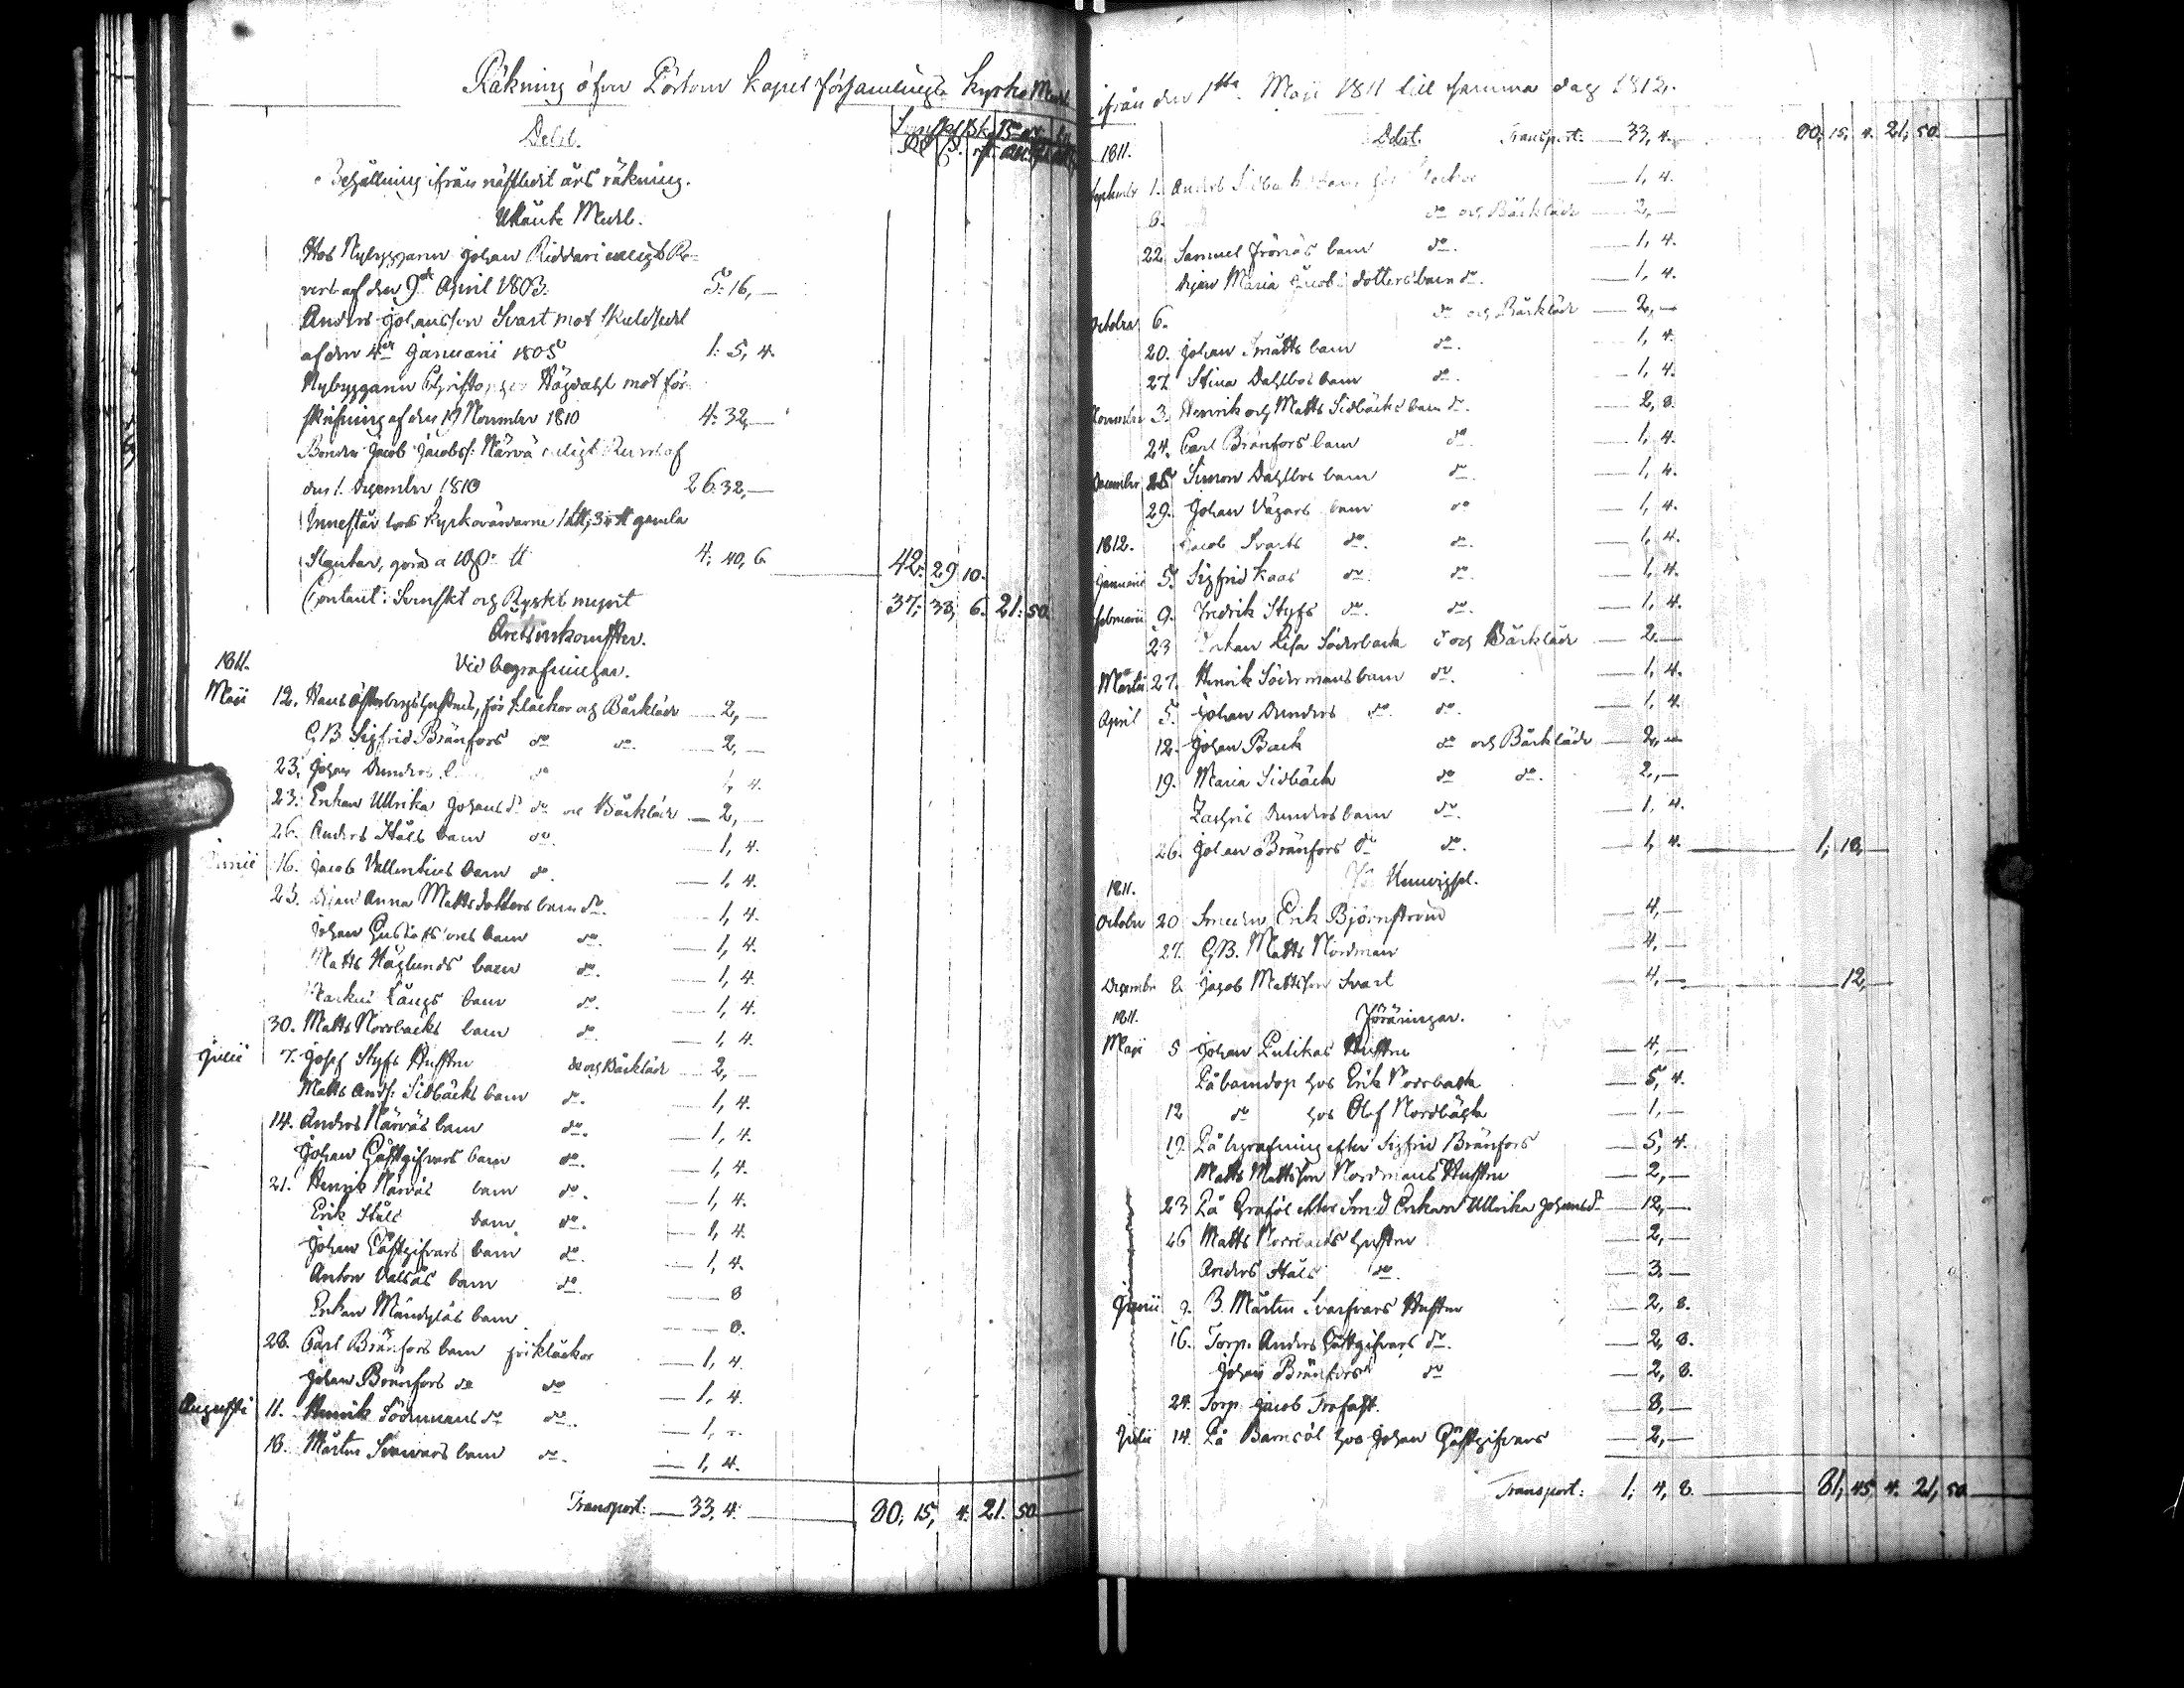 Räkning öfver Pörtom Kapell församlings Kyrko Medel
Debet.
Behållning ifrån nästledit års räkning.
Utlånte Medel.
Hos Nybyggaren Johan Riddari enligt Re-
vers af den 9de April 1803. 5: 16, —
Anders Johansson Svart mot skuldsedel
af den 4de Januarii 1805 1: 5, 4.
Nybyggaren Christopher Högdahl mot för-
skrifning af den 19 November 1810 4: 32, —
Bonden Jacob Jacobss: Närvä enligt Revers af
den 1. December 1810 26: 32, —
Innestår hos Kyrkovärdarne gamla
Slantar, 4: 40, 6. 42: 29 10.
Contant: Svenskt och Ryskt mynt 37: 33, 6. 21: 50.
Årets inkomster.
1811. Vid begrafningar.
Maji 12. Hans Österbergs hustru, för klockor och Bårkläde — 2, —
GB. Sigfrid Bränfors do do — 2, —
23. Johan Dunders do 1, 4.
23. Enkan Ullrika Johansd:r do och Bårkläde — 2, —
26. Anders Ståls barn do. — 1, 4.
Junii 16. Jacob Vallentins barn do. — 1, 4.
23. Pigan Anna Mattsdotters barn do. — 1, 4.
Johan Gustafssons barn do. — 1, 4.
Matts Höglunds barn do. — 1, 4.
Markus Långs barn do. — 1, 4.
30. Matts Norrbacks barn do. — 1, 4.
Julii 7. Josef Styfs Hustru do och Bårkläde — 2, —
Matts Ands: Sidbäcks barn do. — 1, 4.
14. Anders Närväs barn do. — 1, 4.
Johan Gästgifvars barn do. — 1, 4.
21. Henrik Närväs barn do. — 1, 4.
Erik Ståls barn do. — 1, 4.
Johan Gästgifvars barn do. — 1, 4.
Anton Valsås barn do. — 8
Enkan barn — 8.
28. Carl Bränfors barn för klockor — 1, 4.
Johan Bränfors do do — 1, 4.
Augusti 11. Henrik Södermans do do. — 1, 4.
18. Mårten Svarvars barn do. — 1, 4.
Transport: — 33, 4. — 80, 15, 4. 21. 50
ifrån den 1sta Maji 1811 till samma dag 1812.
Debet. Transport: — 33, 4. 80, 15, 4. 21, 50.
1811.
September 1. Anders Sidbäcks barn för klockor — 1, 4.
8. do och Bårkläde — 2, —
22 Samuel Frönäs barn do. — 1, 4.
Pigan Maria Jacobs dotters barn do. — 1, 4.
October 6. do och Bårkläde — 2, —
20. Johan Smatts barn do. — 1, 4.
27. Stina Dahlbos barn do. — 1, 4.
November 3. Henrik och Matts Sidbäcks barn do. — 2, 8.
24. Carl Bränfors barn do — 1, 4.
December 25 Simon Dahlbos barn do — 1, 4.
29. Johan Vägars barn do — 1, 4.
1812. Jacob Svarts do. do. — 1, 4.
Januarii 5. Sigfrid Kaas do. do. — 1, 4.
Februarii 9. Fredrik Styfs do. do. — 1, 4.
23 Enkan Lisa Söderback do och Bårkläde — 2. —
Martii 27. Henrik Södermans barn do. — 1, 4.
April 5. Johan Dunders do. do. — 1, 4.
12. Johan Back do och Bårkläde — 2, —
19. Maria Sidbäck do do. — 2, —
Zachris Dunders barn do. — 1, 4.
26. Johan Bränfors do do. — 1, 4. — 1, 18, —
1811.
October 20 Smeden Erik Björnström — 4, —
27. GB. Matts Nordman — 4, —
December 8. Jacob Mattsson Svart — 4, — 12, —
1811. Föräringar.
Maji 5 Johan Hustru — 4, —
På barndop hos Erik Norrback — 5, 4.
12 do hos Olof Nordbäck — 1, —
19. På begrafning efter Sigfrid Bränfors — 5, 4.
Matts Mattsson Nordmans Hustru — 2, —
23 På Graföl efter Enkan Ullrika Johansd:r — 12, —
26 Matts Norrbacks hustru — 2, —
Anders Ståls do. — 3. —
Junii 9. B. Mårten Svarfvars Hustru — 2, 8.
16. Torp. Anders Gästgifvars do. — 2, 8.
Johan Bränfors do — 2, 8.
24. Torp. Jacob Trofast. — 8, —
Julii 14. På Barnsöl hos Johan Gästgifvars — 2, —
Transport: 1, 4, 8. — 81, 45, 4. 21, 50